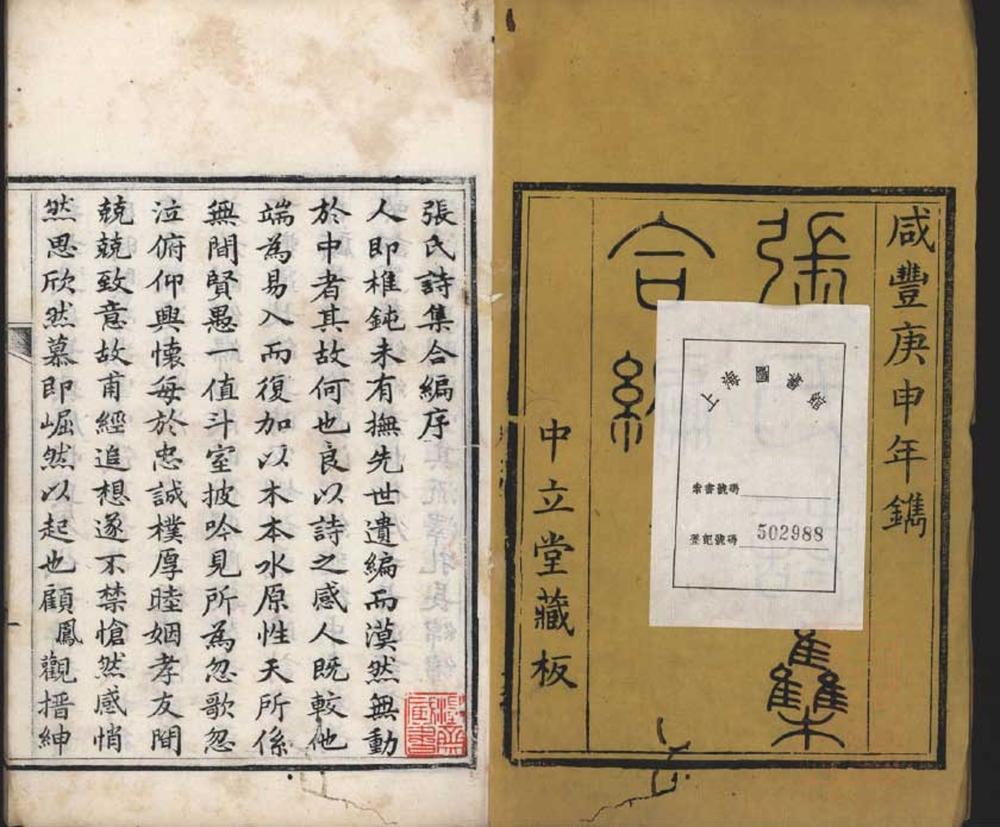 咸豐庚申年鐫
張
集
合
中立堂藏板
上海圖書館
索書號碼
登記號碼 502988
張氏詩集合編序
人即椎鈍未有撫先世遺編而漠然無動
於中者其故何也良以詩之感人既較他
端為易入而復加以木本水原性天所係
無間賢愚一值斗室披吟見所為忽歌忽
泣俯仰興懷每於忠誠樸厚睦姻孝友間
兢兢致意故甫經追想遂不禁愴然感悄
然思欣然慕即崛然以起也顧鳳觀搢紳